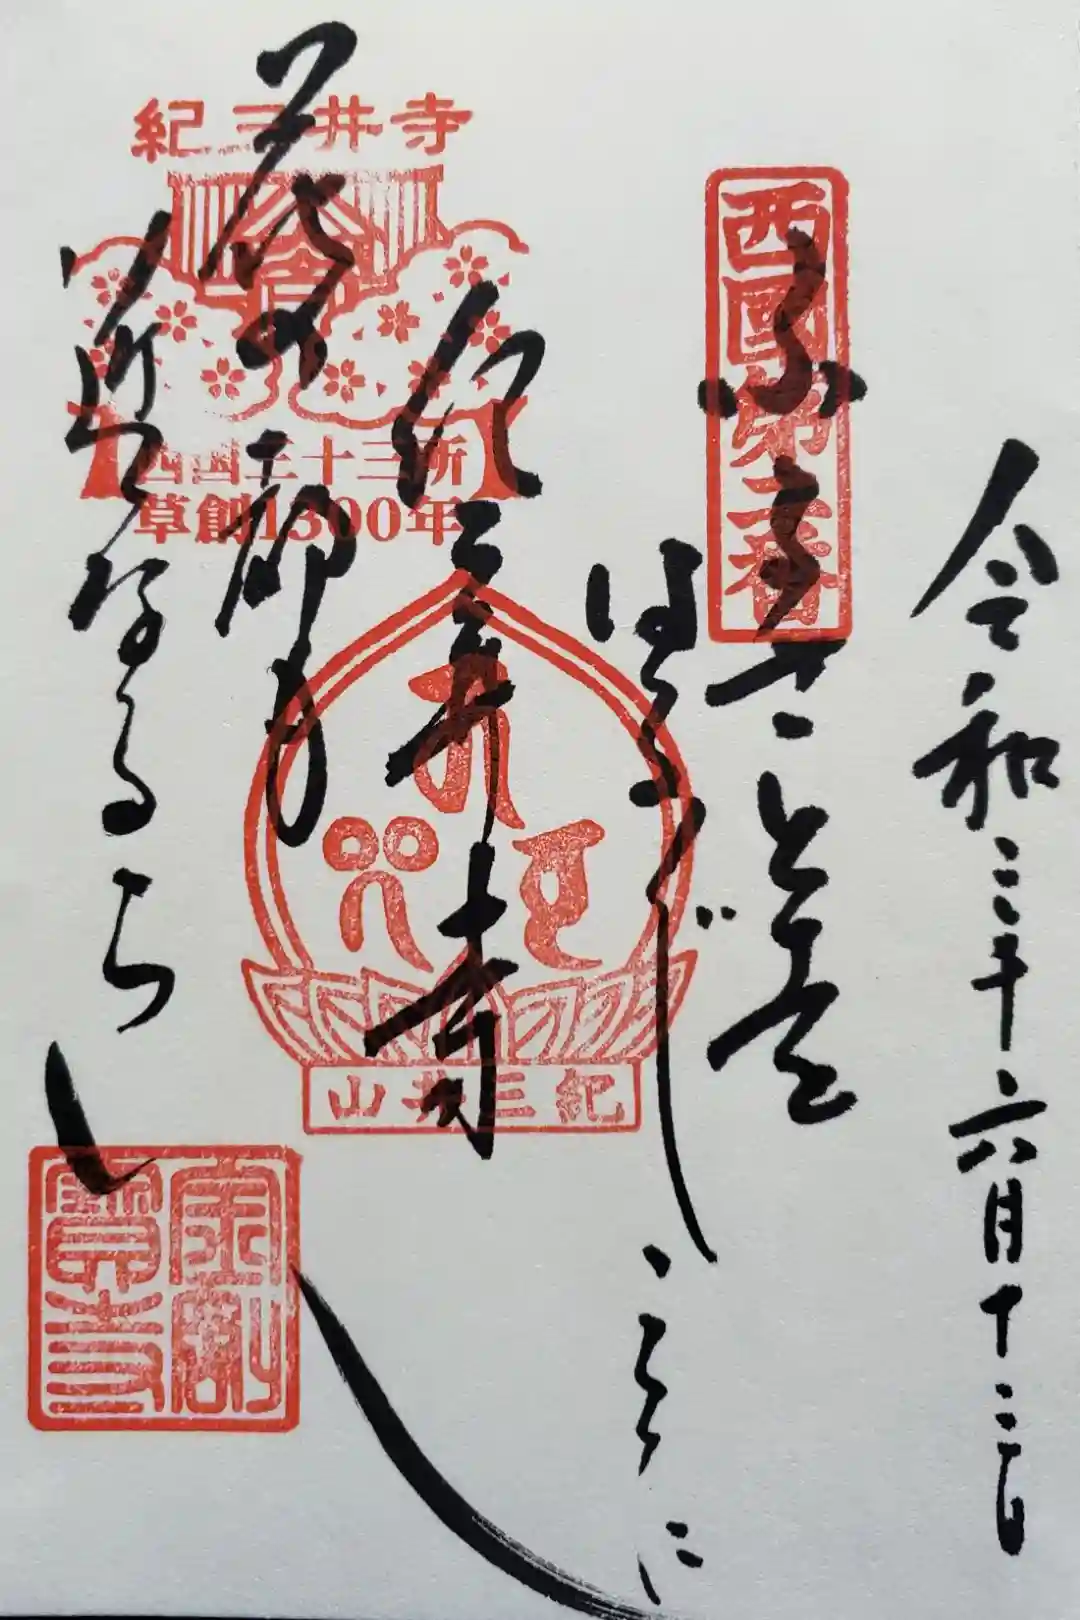 令和三年六月十三日
西國第二番
ふるさとを
はる〴〵こゝに
紀三井寺
花の都も
近くなるらん
紀三井寺
西国三十三所
草創1300年
紀三井山
金剛
寶寺